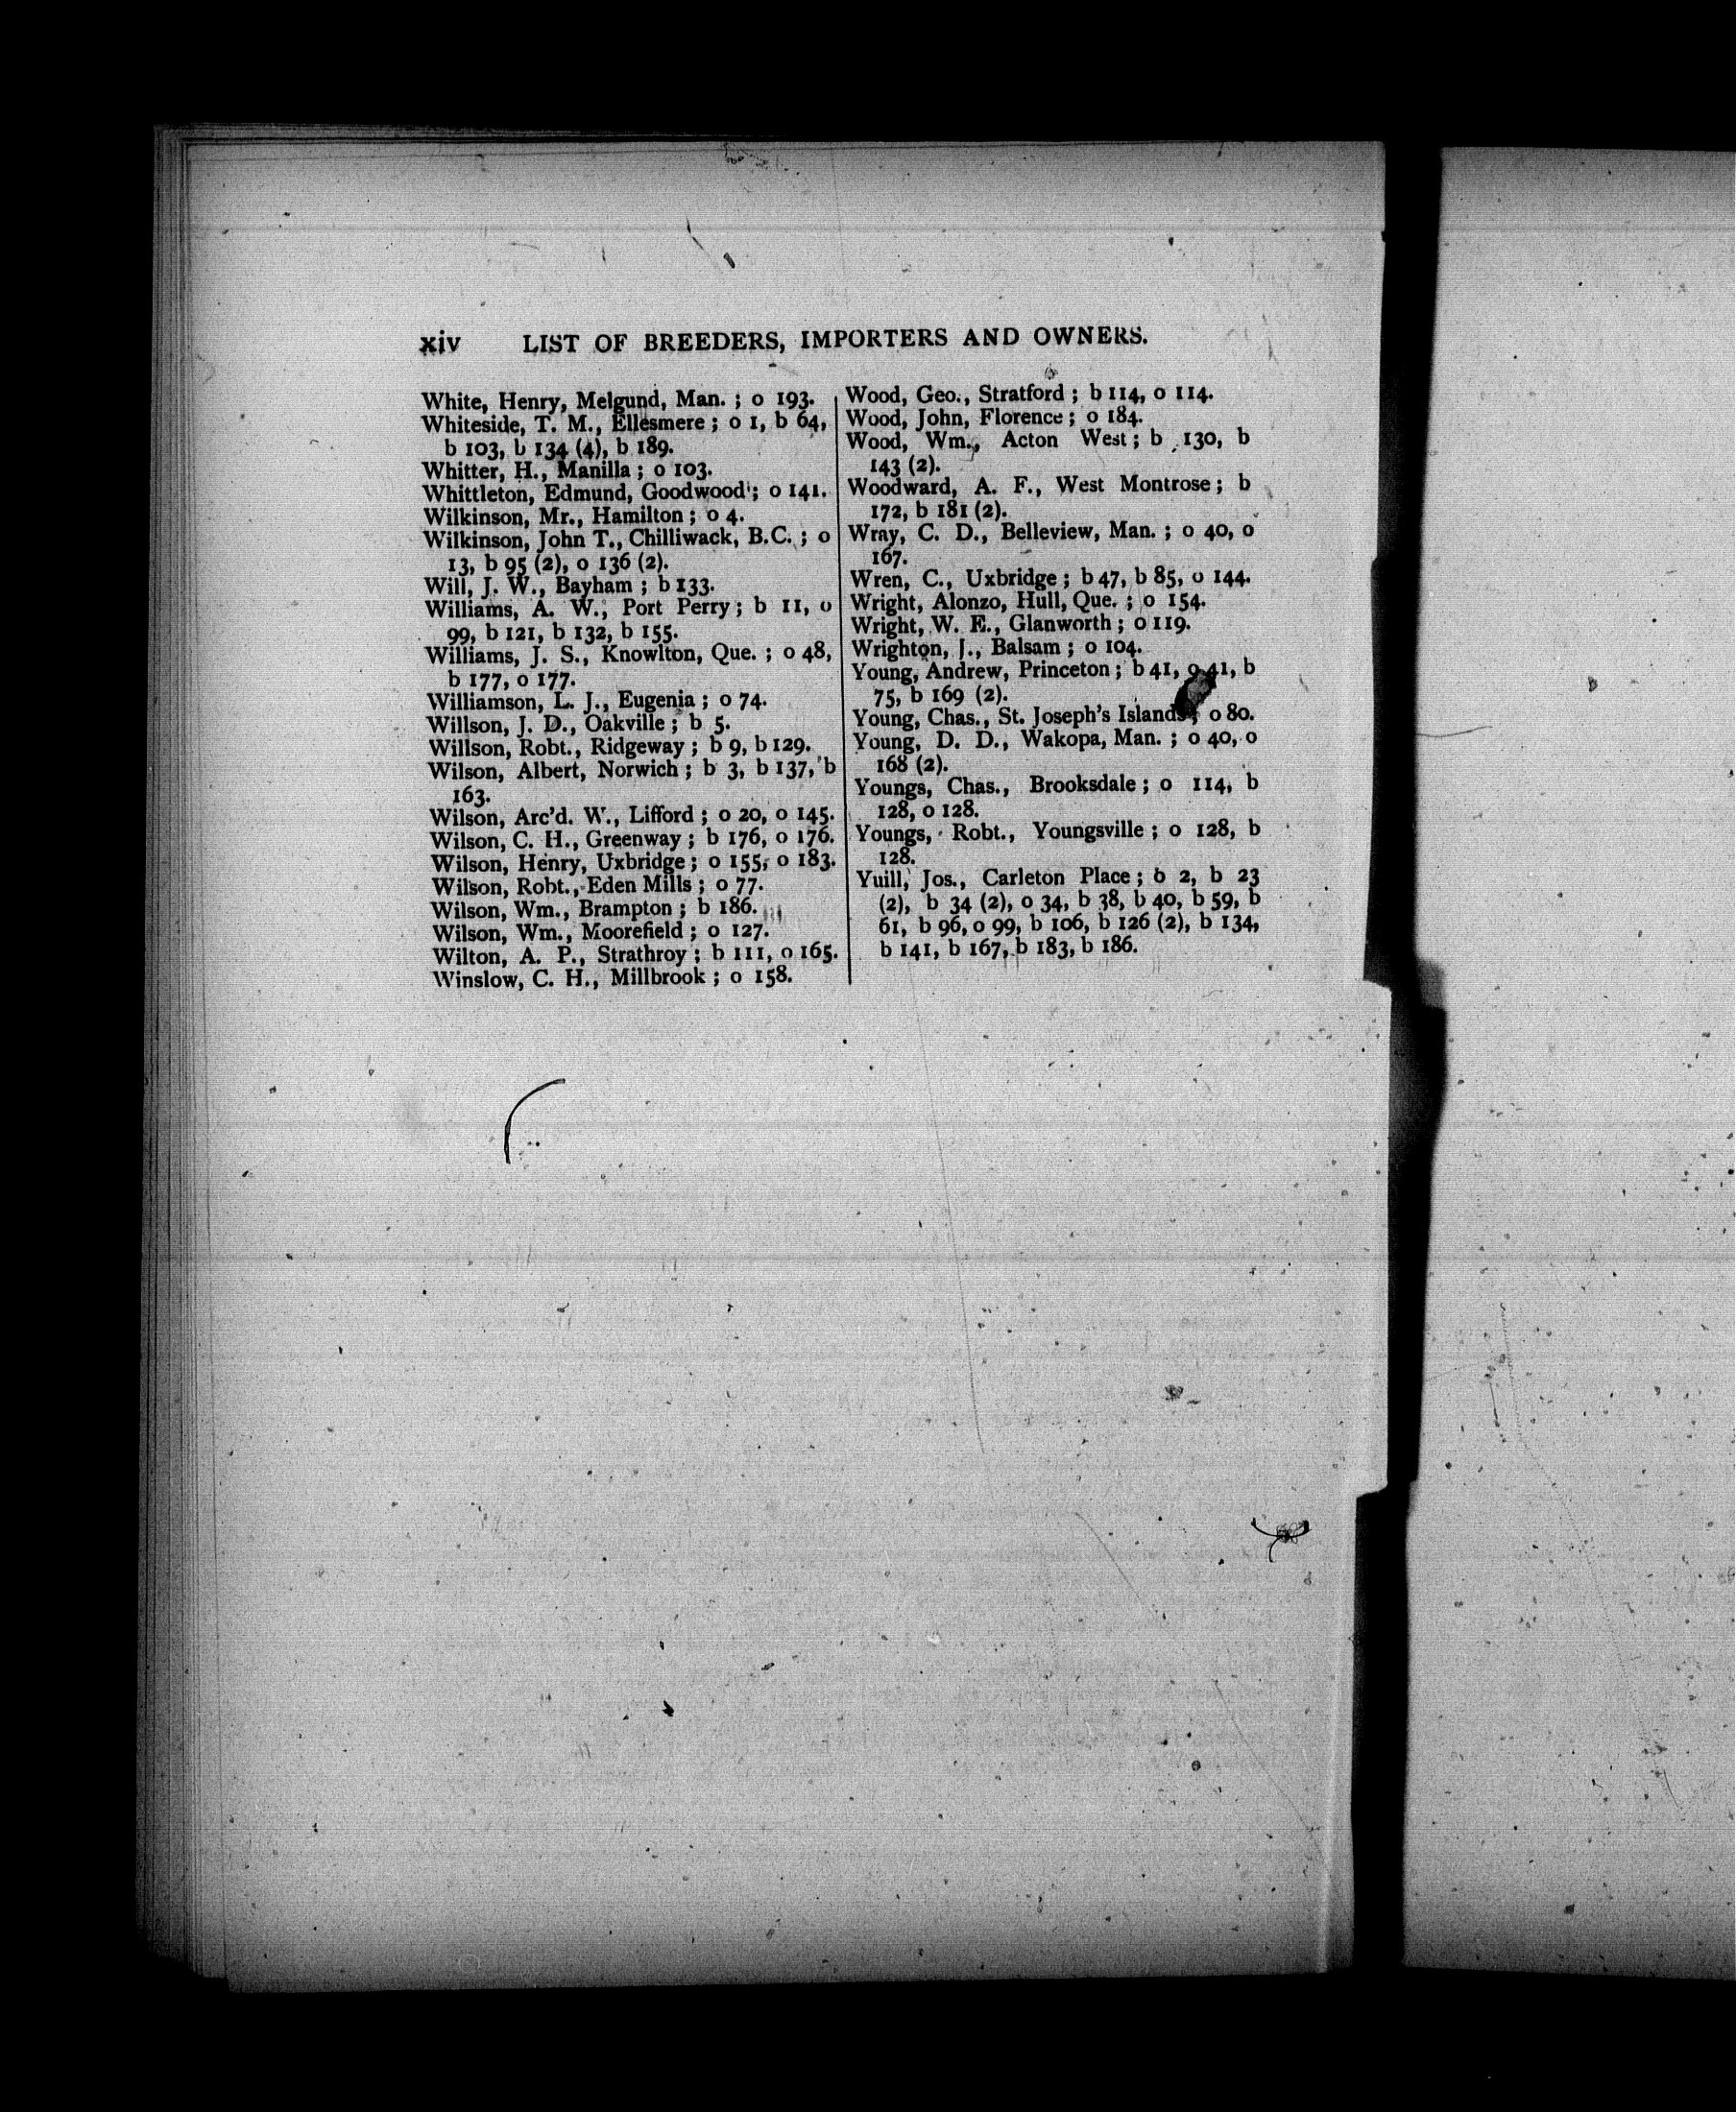 xiv LIST OF BREEDERS, IMPORTERS AND OWNERS.
White, Henry, Melgund, Man. ; o 193.
Whiteside, T. M., Ellesmere ; o 1, b 64,
b 103, b 134 (4), b 189.
Whitter, H., Manilla ; o 103.
Whittleton, Edmund, Goodwood ; o 141.
Wilkinson, Mr., Hamilton ; o 4.
Wilkinson, John T., Chilliwack, B.C. ; o
13, b 95 (2), o 136 (2).
Will, J. W., Bayham ; b 133.
Williams, A. W., Port Perry ; b 11, o
99, b 121, b 132, b 155.
Williams, J. S., Knowlton, Que. ; o 48,
b 177, o 177.
Williamson, L. J., Eugenia ; o 74.
Willson, J. D., Oakville ; b 5.
Willson, Robt., Ridgeway ; b 9, b 129.
Wilson, Albert, Norwich ; b 3, b 137, b
163.
Wilson, Arc'd. W., Lifford ; o 20, o 145.
Wilson, C. H., Greenway ; b 176, o 176.
Wilson, Henry, Uxbridge ; o 155, o 183.
Wilson, Robt., Eden Mills ; o 77.
Wilson, Wm., Brampton ; b 186.
Wilson, Wm., Moorefield ; o 127.
Wilton, A. P., Strathroy ; b 111, o 165.
Winslow, C. H., Millbrook ; o 158.
Wood, Geo., Stratford ; b 114, o 114.
Wood, John, Florence ; o 184.
Wood, Wm., Acton West ; b 130, b
143 (2).
Woodward, A. F., West Montrose ; b
172, b 181 (2).
Wray, C. D., Belleview, Man. ; o 40, o
167.
Wren, C., Uxbridge ; b 47, b 85, o 144.
Wright, Alonzo, Hull, Que. ; o 154.
Wright, W. E., Glanworth ; o 119.
Wrighton, J., Balsam ; o 104.
Young, Andrew, Princeton ; b 41, o 41, b
75, b 169 (2).
Young, Chas., St. Joseph's Islands ; o 80.
Young, D. D., Wakopa, Man. ; o 40, o
168 (2).
Youngs, Chas., Brooksdale ; o 114, b
128, o 128.
Youngs, Robt., Youngsville ; o 128, b
128.
Yuill, Jos., Carleton Place ; b 2, b 23
(2), b 34 (2), o 34, b 38, b 40, b 59, b
61, b 96, o 99, b 106, b 126 (2), b 134,
b 141, b 167, b 183, b 186.